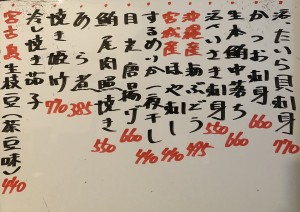 活たいら貝刺身 770
かつお刺身 660
生本鮪中落ち 660
活いさき刺身 550
沖縄産海ぶどう 495
宮城産ほや刺し 770
するめいか一夜干し 440
目光唐揚げ 660
鮪尾肉醤焼き 550
あら煮 385
焼き姫竹 770
冷し焼き茄子
宮古島生枝豆(茶豆味) 440